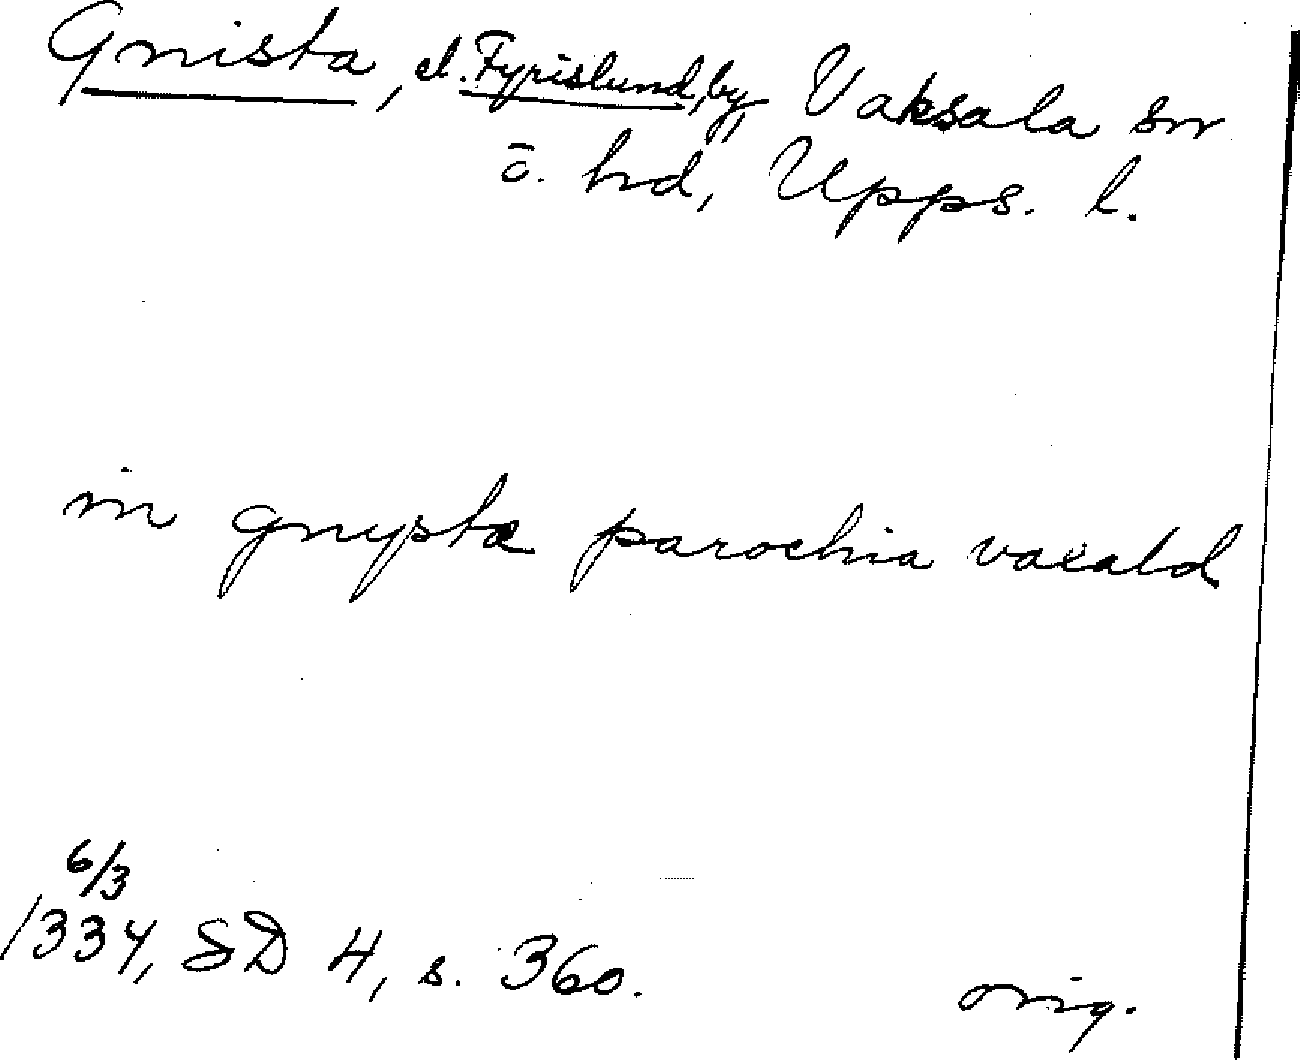 Gnista, el. Fyrislund, by, Vaksala sn
ö. hd, Upps. l.
in gnysta parochia vaxald
6/3
1334, SD 4, s. 360.
orig.